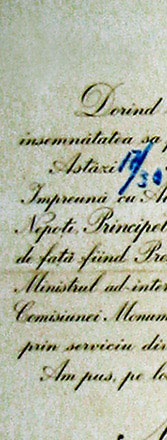 Dorind
insemnătatea sa
Astăzi 17/30
Impreună cu
Nepoți, Principele
de față fiind
Ministrul ad-inter
Comisiunei Monum
prin serviciu
Am pus, pe